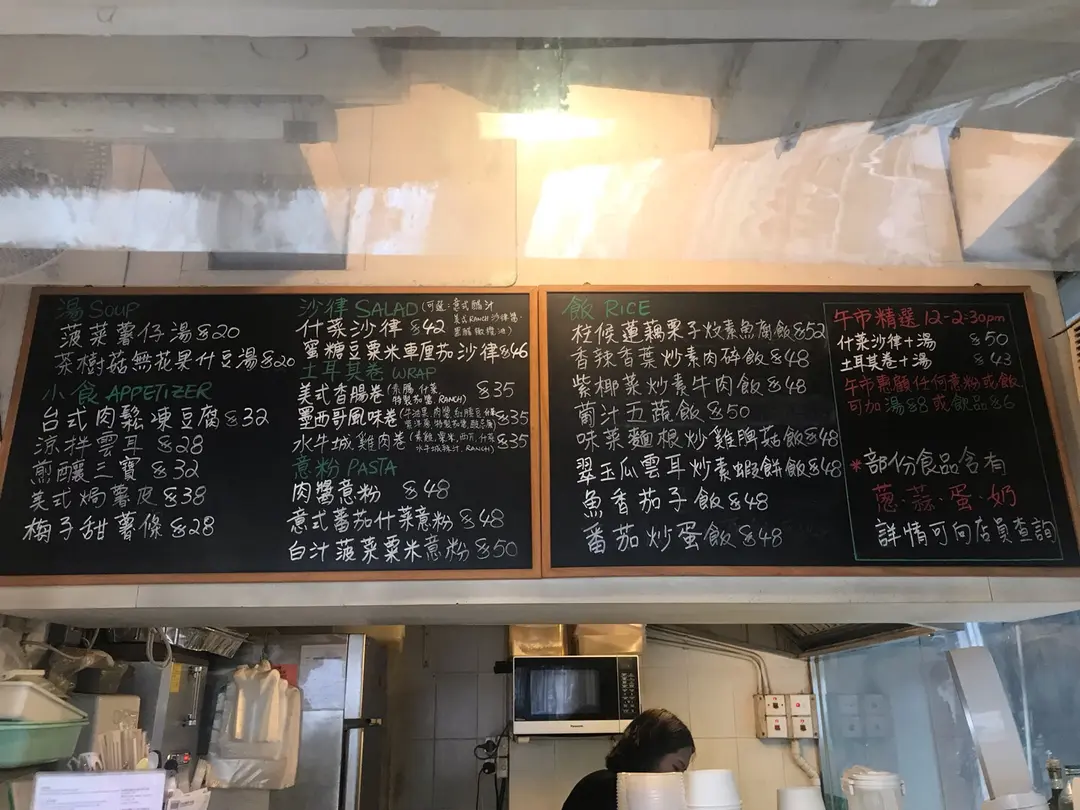 湯 SOUP
菠菜薯仔湯 $20
茶樹菇無花果什豆湯 $20
小食 APPETIZER
台式肉鬆凍豆腐 $32
涼拌雲耳 $28
煎釀三寶 $32
美式焗薯皮 $38
梅子甜薯條 $28
沙律 SALAD (可選：意式醋汁
美式RANCH沙律醬
黑醋橄欖油)
什菜沙律 $42
蜜糖豆粟米車厘茄沙律 $46
土耳其卷 WRAP
美式香腸卷 (素腸, 什菜 $35
特製茄醬, RANCH)
墨西哥風味卷 $35
水牛城雞肉卷 (素雞, 粟米, 西芹, 什菜 $35
水牛城辣汁, RANCH)
意粉 PASTA
肉醬意粉 $48
意式蕃茄什菜意粉 $48
白汁菠菜粟米意粉 $50
飯 RICE
柱候蓮藕栗子炆素魚腐飯 $52
香辣香葉炒素肉碎飯 $48
紫椰菜炒素牛肉飯 $48
葡汁五蔬飯 $50
味菜麵根炒雞脾菇飯 $48
翠玉瓜雲耳炒素蝦餅飯 $48
魚香茄子飯 $48
番茄炒蛋飯 $48
午市精選 12-2:30pm
什菜沙律+湯 $50
土耳其卷+湯 $43
午市惠顧任何意粉或飯
可加湯$8或飲品$6
*部份食品含有
蔥·蒜·蛋·奶
詳情可向店員查詢
Panasonic